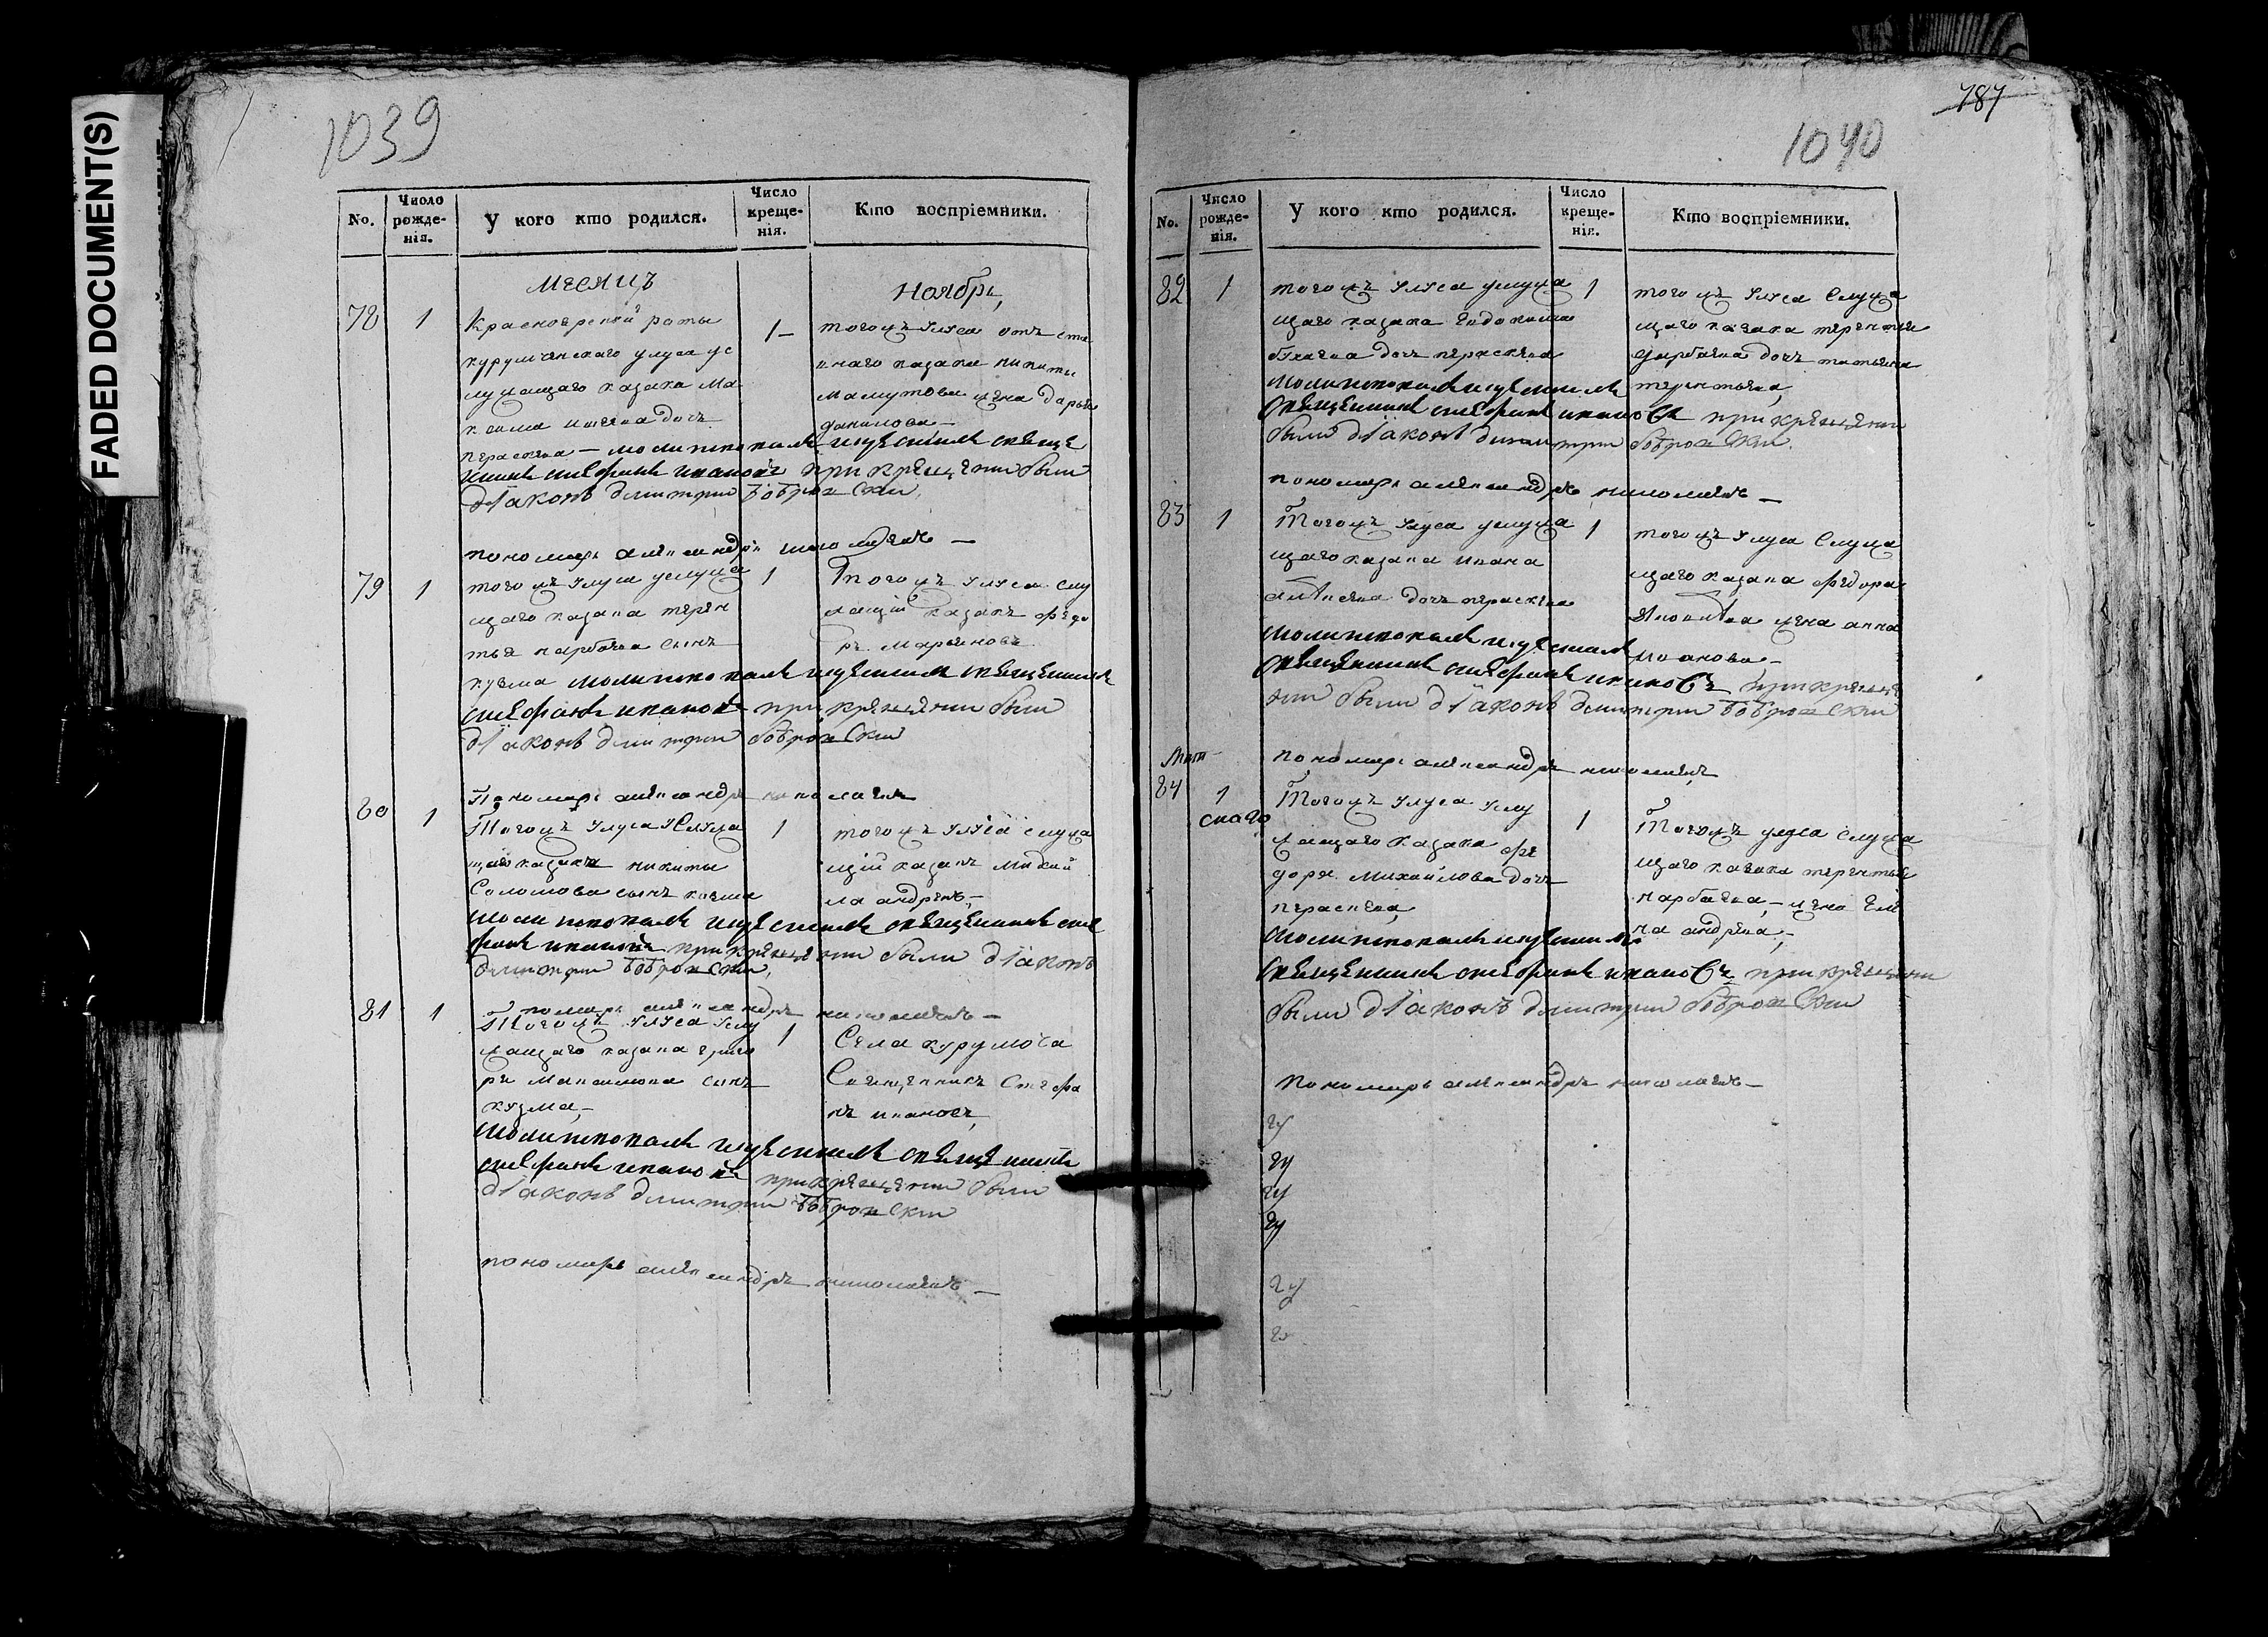 FADED DOCUMENT(S)
1039
No.
Число рожде-нія.
У кого кто родился.
Число креще-нія.
Кто воспріемники.
месяцъ
ноябрь
78
1
Красноярской роты
курумчанскаго улуса ус
лужащаго казака Ма
дочь
параскева – молитвовалъ и крестилъ свяще
нникъ стефанъ ивановъ при крещении были
діаконъ димитрии бобровски
пономарь александръ николаевъ –
1 –
тогожъ улуса отъ ста
внаго казака никиты
мамутова жена дарья
данилова –
79
1
тогожъ улуса услужа
щаго казака терен
тья нарбаева сынъ
кузма молитвовалъ и крестилъ священникъ
стефанъ ивановъ при крещении были
діаконъ димитрии бобровски
пономарь александръ николаевъ
1
тогожъ улуса слу
жащій казакъ федо
ръ марьяновъ
80
1
тогожъ улуса услужа
щаго казака никиты
Соломова сынъ козма
молитвовалъ и крестилъ священникъ сте
фанъ ивановъ при крещении были діаконъ
димитрии бобровски
пономарь александръ николаевъ –
1
тогожъ улуса служа
щій казакъ михай
ла андреевъ –
81
1
тогожъ улуса услу
жащаго казака григо
рья максимова сынъ
кузма, –
молитвовалъ и крестилъ священникъ
стефанъ ивановъ при крещении были
діаконъ димитрии бобровски
пономарь александръ николаевъ –
1
Села курумоча
Священникъ Стефа
нъ ивановъ
787
1040
No.
Число рожде-нія.
У кого кто родился.
Число креще-нія.
Кто воспріемники.
82
1
тогожъ улуса услужа
щаго казака евдокима
дочь параскева
молитвовалъ и крестилъ
священникъ стефанъ ивановъ при крещении
были діаконъ димитрии бобровски
пономарь александръ николаевъ –
1
тогожъ улуса служа
щаго казака терентья
дарбаева дочь татьяна
терентьева,
83
1
тогожъ улуса услужа
щаго казака ивана
алексеева дочь параскева
молитвовалъ и крестилъ
священникъ стефанъ ивановъ при креще
нии были діаконъ димитрии бобровски
пономарь александръ николаевъ
1
тогожъ улуса служа
щаго казака федора
жена анна
иванова –
84
1
тогожъ улуса услу
жащаго казака фе
дора михайлова дочь
параскева,
молитвовалъ и крестилъ
священникъ стефанъ ивановъ при крещении
были діаконъ димитрии бобровски
пономарь александръ николаевъ –
1
тогожъ улуса служа
щаго казака терентья
нарбаева, – жена еле
на андреева, –